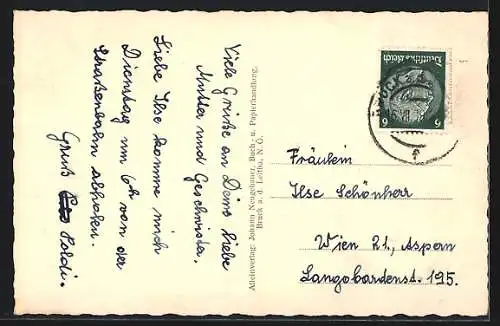 Viele Grüße an Deine liebe
Mutter und Geschwister.
Liebe Ilse komme mich
Dienstag um 6h von der
Straßenbahn abholen.
Gruß
Poldi.
Alleinverlag: Johann Neugebauer, Buch- u. Papierhandlung,
Bruck a. d. Leitha, N. Ö.
Deutsches Reich
6
6
BRUCK
Fräulein
Ilse Schönherr
Wien 21, Aspern
Langobardenst. 195.